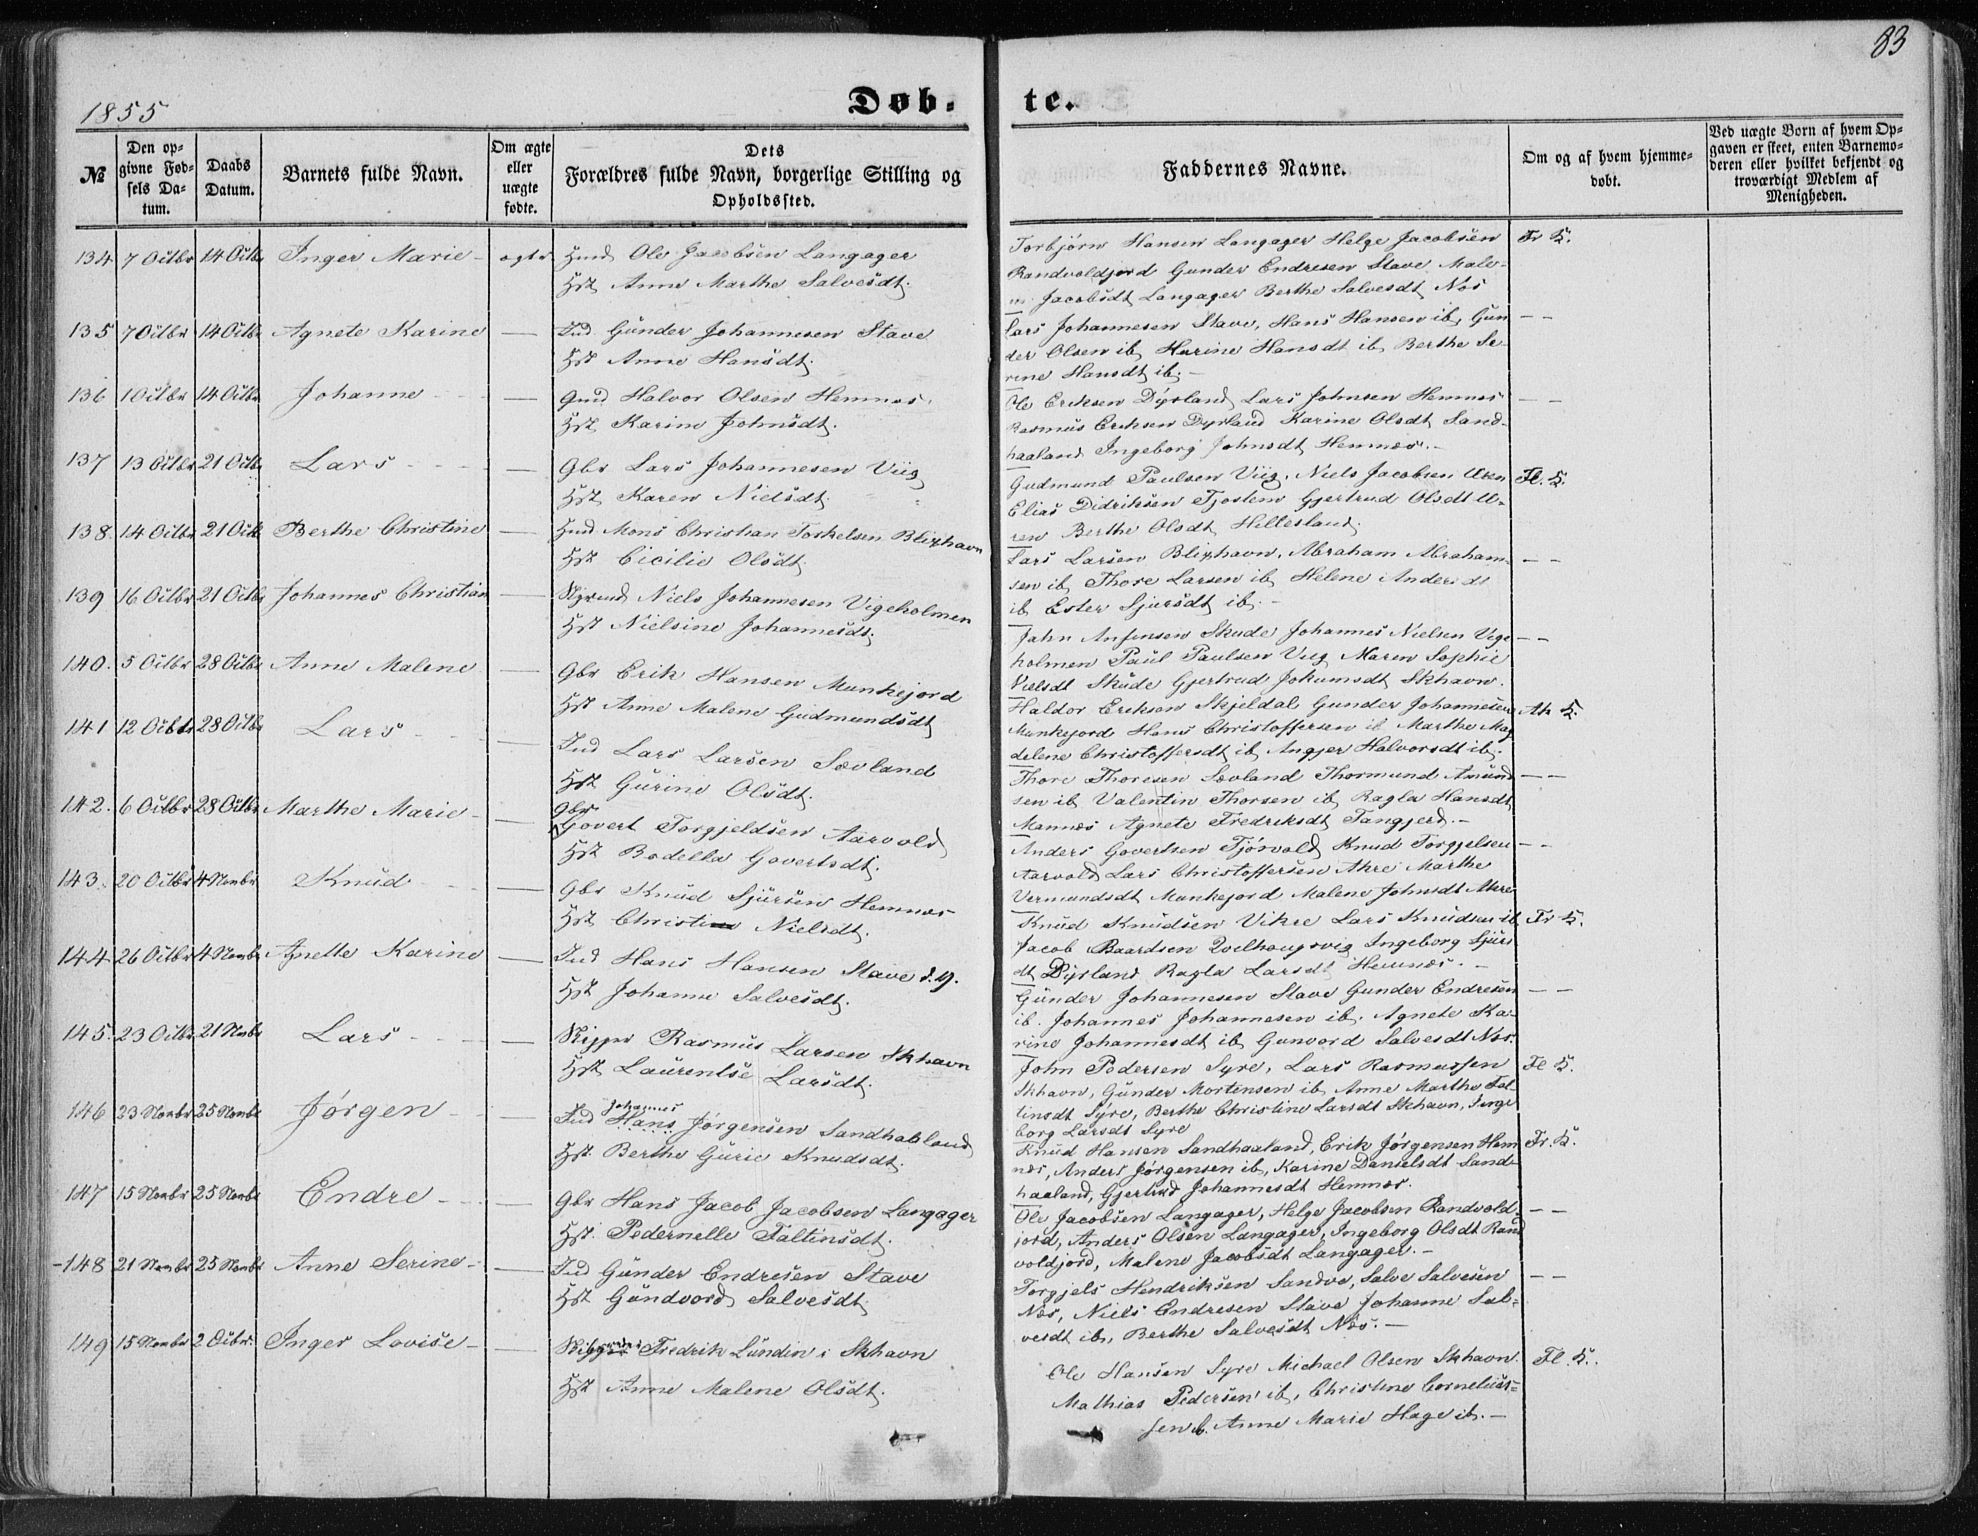 83
1855
Døb-
te.
№
Den op-
givne Fød-
sels Da-
tum.
Daabs
Datum.
Barnets fulde Navn.
Om ægte
eller
uægte
fødte.
Dets
Forældres fulde Navn, borgerlige Stilling og
Opholdssted.
Faddernes Navne.
Om og af hvem hjemme-
døbt.
Ved uægte Børn af hvem Op-
gaven er skeet, enten Barnemo-
deren eller hvilket bekjendt og
troværdigt Medlem af
Menigheden.
134 7 Octbr 14 Octbr Inger Marie - ægte Hmd Ole Jacobsen Langager
Hst Anne Marthe Salvesdt.
Torbjørn Hansen Langager Helge Jacobsen Fr K.
Randvoldjord Gunder Endresen Stave Male-
ne Jacobsdt Langager Berthe Salvesdt Nos
135 7 Octbr 14 Octbr Agnete Karine — Ind Gunder Johannesen Stave
Hst Anne Hansdt.
Lars Johannesen Stave, Hans Hansen ib, Gun — —
der Olsen ib Karine Hansdt ib Berthe Se-
rine Hansdt ib. —
136 1 Octbr 14 Octbr Johanne — Gmd Halvor Olsen Hemnes.
Hst Karine Johnsdt.
Ole Eriksen Dyrland Lars Johnsen Hemnes — —
Rasmus Eriksen Dyrland Karine Olsdt Sand-
haaland Ingeborg Johnsdt Hemnæs. —
137 13 Octbr 21 Octbr Lars — Gbr Lars Johannesen Viig
Hst Karen Nielsdt.
Gudmund Paulsen Viig, Niels Jacobsen Uren Fl. K.
Elias Didriksen Tjoslem Gjertrud Olsdt U-
ren Berthe Olsdt Hillesland.
138. 14 Octbr 21 Octbr Berthe Christine — Hmd Mons Christian Torkelsen Blixhavn
Hst Cicilie Olsdt
Lars Larsen Blixhavn, Abraham Abraham- — —
sen ib Thore Larsen ib Helene Andersdt
ib Ester Sjursdt ib. —
139 16 Octbr 21 Octbr Johannes Christian — Niels Johannesen Vigeholmen
Hst Nielsine Johannesdt.
Jahn Anfensen Skude Johannes Nielsen Vige — —
holmen Paul Paulsen Viig Maren Sophie
Nielsdt Skude Gjertrud Jokumsdt Skhavn.
140. 5 Octbr 28 Octbr Anne Malene — Gbr Erik Hansen Munkejord
Hst Anne Malene Gudmundsdt
Haldor Eriksen Skjeldal Gunder Johannesen Ak K.
Munkejord Hans Christoffersen ib Marthe Mag
delene Christoffersdt ib Angjer Halvorsdt ib.
141 12 Octbr 28 Octbr Lars — Ind Lars Larsen Sævland
Hst Gurine Olsdt.
Thore Thoresen Sævland Thormund Amund — —
sen ib Valentin Thorsen ib Ragla Hansdt
Mannes Agnete Fredriksdt Tangjerd. —
142. 6 Octbr 28 Octbr Marthe Marie — Gbr
Govert Torgjeldsen Aarvold
Hst Bodella Govertsdt.
Anders Govertsen Tjørvold Knud Torgjelsen — —
Aarvold Lars Christoffersen Akre Marthe
Vermundsdt Munkejord Malene Johnsdt Akre
143. 20 Octbr 4 Novbr Knud — Gbr Knud Sjursen Hemnæs
Hst Christine Nielsdt.
Knud Knudsen Vikre Lars Knudsen ib Fr K.
Jacob Baardsen Ingeborg Sjurs
dt Dyrland Ragla Larsdt Hemnæs. —
144 26 Octbr 4 Novbr Agnette Karine — Ind Hans Hansen Stave d. y.
Hst Johanne Salvesdt.
Gunder Johannesen Stave Gunder Endresen — —
ib. Johannes Johannesen ib. Agnete Ka-
rine Johannesdt ib Gunvord Salvesdt Nos.
145. 23 Octbr 21 Novbr Lars — Skipper Rasmus Larsen Skhavn
Hst Laurentse Larsdt.
John Pedersen Syre, Lars Rasmussen Fl K.
Skhavn, Gunder Mortensen ib Anne Marthe Fal-
tinsdt Syre, Berthe Christine Larsdt Skhavn, Inge
borg Larsdt Syre
146 23 Novbr 25 Novbr Jørgen — Johannes
Ind Hans Jørgensen Sandhaaland
Hst Berthe Gurie Knudsdt.
Knud Hansen Sandhaaland, Erik Jørgensen Hem Fr. K.
næs, Anders Jørgensen ib, Karine Danielsdt Sand-
haaland, Gjertrud Johannesdt Hemnæs.
147 15 Novbr 25 Novbr Endre — Gbr Hans Jacob Jacobsen Langager
Hst. Pedernelle Faltinsdt.
Ole Jacobsen Langager, Helge Jacobsen Randvold- — —
jord, Anders Olsen Langager, Ingeborg Olsdt Rand
voldjord, Malene Jacobsdt Langager. —
148 21 Novbr 25 Novbr Anne Serine — Ind Gunder Endresen Stave
Hst Gundvord Salvesdt.
Torgjels Hendriksen Sandve, Salve Salvesen — —
Nos, Niels Endresen Stave Johanne Sal-
vesdt ib, Berthe Salvesdt Nos. —
149 15 Novbr 2 Inger Lovise — Fredrik Lundin i Skhavn
Hst Anne Malene Olsdt.
Ole Hansen Syre Michael Olsen Skhavn Fl. K.
Mathias Pedersen ib, Christine Cornelius-
sen ib. Anne Marie Hage ib. —